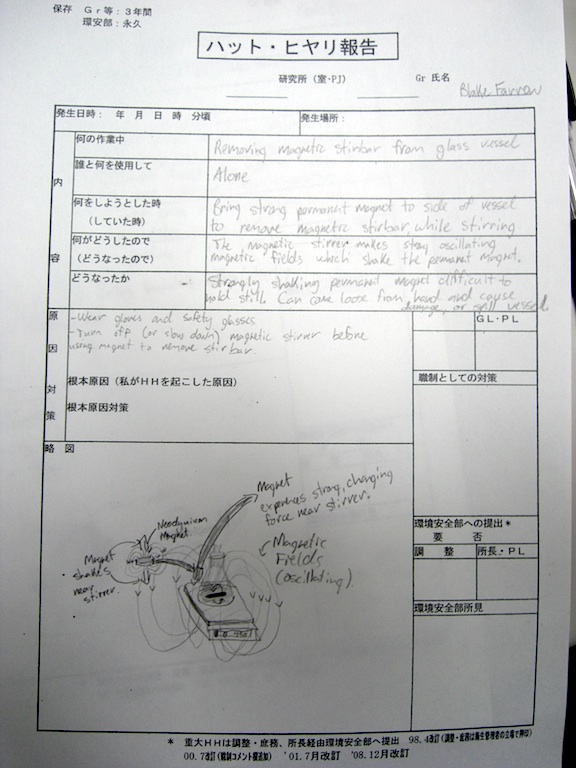 保存 Gr等：3年間
環安部：永久
ハット・ヒヤリ報告
研究所（室・PJ）
Gr 氏名
Blake Farrow
発生日時： 年 月 日 時 分頃
発生場所：
内容
何の作業中
Removing magnetic stirbar from glass vessel
誰と何を使用して
Alone
何をしようとした時
（していた時）
Bring strong permanent magnet to side of vessel
to remove magnetic stirbar, while stirring
何がどうしたので
（どうなったので）
The magnetic stirrer makes strong oscillating
magnetic fields which shake the permanent magnet.
どうなったか
Strongly shaking permanent magnet difficult to
hold still. Can come loose from hand and cause
damage, or spill vessel
原因対策
-Wear gloves and safety glasses
-Turn off (or slow down) magnetic stirrer before
using magnet to remove stirbar.
根本原因（私がHHを起こした原因）
根本原因対策
GL・PL
職制としての対策
略図
Magnet
experiences strong, changing
force near stirrer.
Neodymium
Magnet
Magnet
shakes
near
stirrer.
Magnetic
Fields
(oscillating)
環境安全部への提出＊
要 否
調 整
所長・PL
環境安全部所見
＊ 重大HHは調整・庶務、所長経由環境安全部へ提出 98.4改訂(調整・庶務は衛生管理者の立場で押印)
00.7改訂(職制コメント欄追加) '01.7月改訂 '08.12月改訂